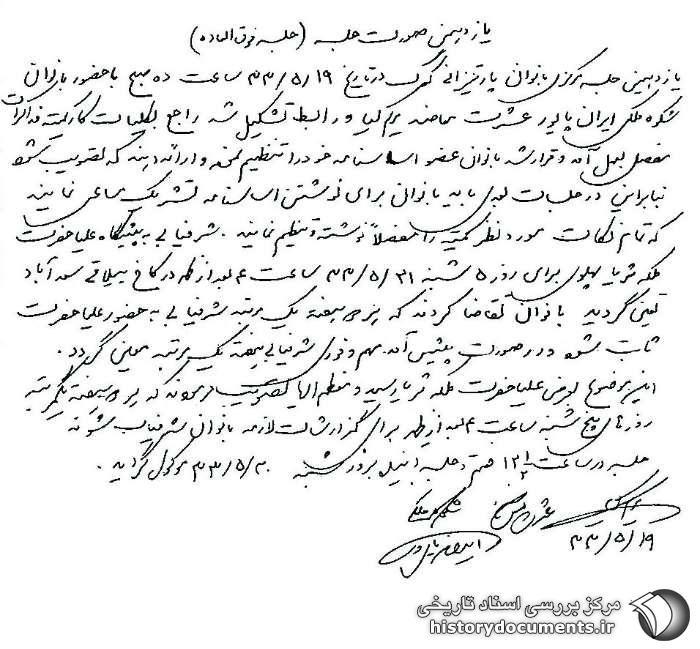 یازدهمین صورت جلسه (جلسه فوق العاده)
یازدهمین جلسه مرکزی بانوان پارتیزانی گمرک در تاریخ ۳۳/۵/۱۹ ساعت ده صبح با حضور بانوان
شکوه ملکی ایران پالور عشرت مریم کیا و رابط تشکیل شد راجع بکلیات کار کمیته مذاکرات
مفصل بعمل آمد و قرار شد بانوان عضو اساسنامه خود را تنظیم نموده و ارائه دهند که تصویب شود
بنابراین در جلسات بعدی باید بانوان برای نوشتن اساسنامه تشریک مساعی نمایند
که تمام نکات مورد نظر کمیته را مفصلاً نوشته و تنظیم نمایند. شرفیابی به پیشگاه علیاحضرت
ملکه ثریا پهلوی برای روز ۵ شنبه ۳۳/۵/۲۱ ساعت ۴ بعد از ظهر در کاخ ییلاقی سعد آباد
تعیین گردید بانوان تقاضا کردند که هر دو هفته یک مرتبه شرفیابی به حضور علیاحضرت
ثابت بشود و در صورت پیش آمد مهم و فوری شرفیابی هفته یک مرتبه معین گردد.
این موضوع بعرض علیاحضرت ملکه ثریا رسید و معظم الیها تصویب فرمودند که هر دو هفته یکمرتبه
روزهای پنج شنبه ساعت ۴ بعد از ظهر برای گزارشات لازمه بانوان شرفیاب شوند
جلسه در ساعت ۱۲/۱/۲ ختم و جلسه بروز شنبه ۳۳/۵/۳۰ موکول گردید.
۳۳/۵/۱۹
مرکز بررسی اسناد تاریخی
historydocuments.ir